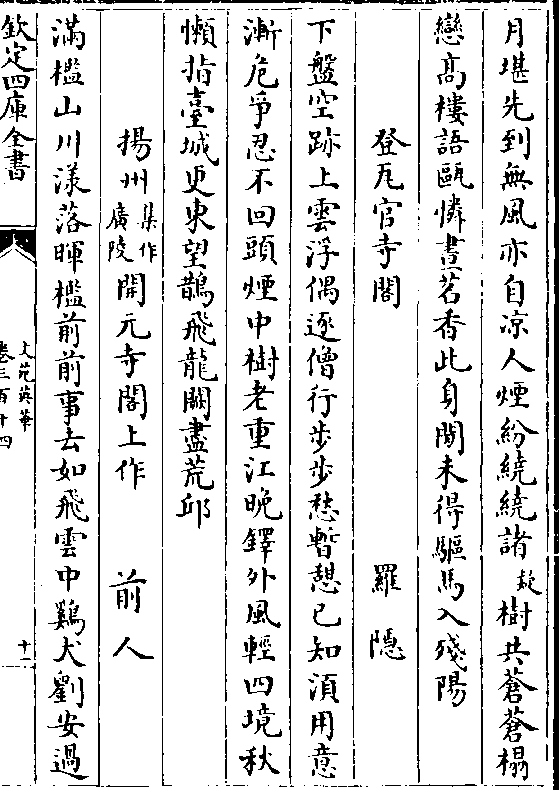 月堪先到無風亦自凉人煙紛繞繞諸疑樹共蒼蒼榻
戀高樓語甌憐晝茗香此身閒未得驅馬入殘陽
登瓦官寺閣 羅隱
下盤空跡上雲浮偶逐僧行步步愁暫憩已知湏用意
漸危爭忍不回頭煙中樹老重江晩鐸外風輕四境秋
懶指臺城更東望鵲飛龍闕盡荒邱
揚州集作廣陵開元寺閣上作 前人
滿檻山川漾落暉檻前前事去如飛雲中鷄犬劉安過
欽定四庫全書
文苑英華
卷三百十四
十一